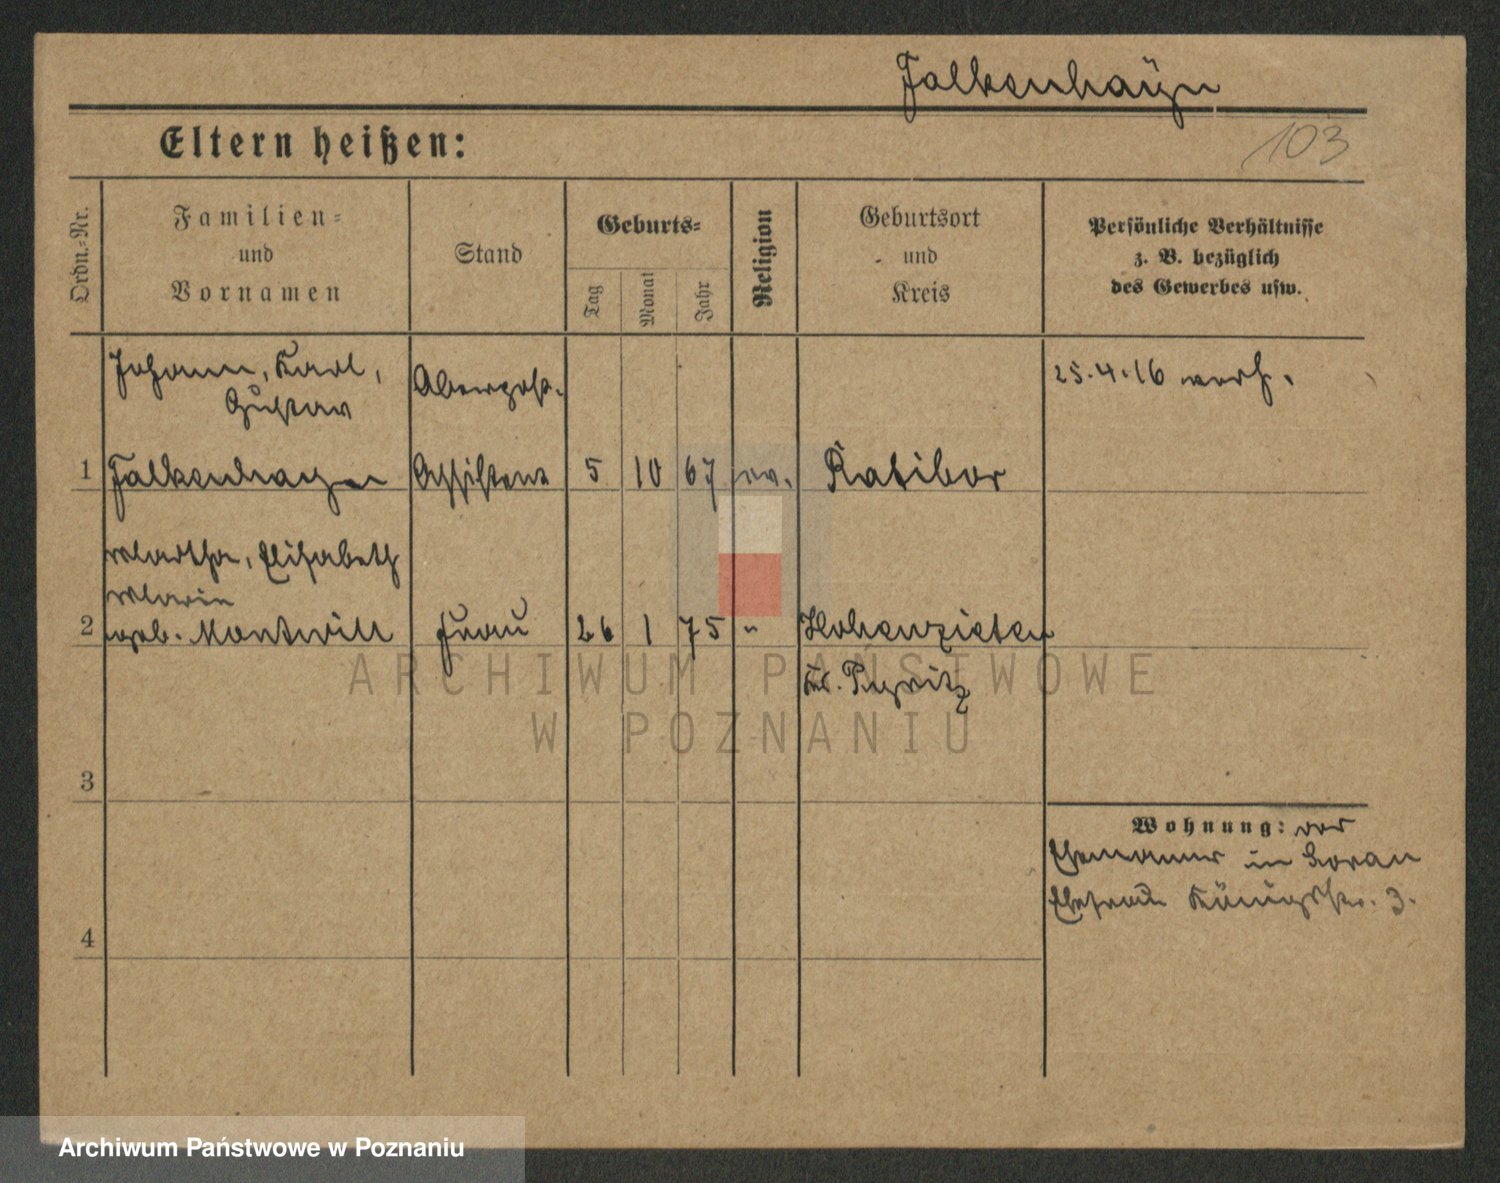 Falkenhaÿn
Eltern heißen:
103
Ordn.-Nr.
Familien-
und
Vornamen
Stand
Geburts-
Tag
Monat
Jahr
Religion
Geburtsort
und
Kreis
Persönliche Verhältnisse
z. B. bezüglich
des Gewerbes usw.
Johann, Karl,
Gustav
Oberpost-
25.4.16 verh.
1 Falkenhayn Assistent 5 10 67 ev. Ratibor
Martha, Elisabeth
Marie
2 geb. Montwill Frau 26 1 75 " Hohenzieten
Kr. Pyritz
3
Wohnung: der
Ehemann in
Ehefrau Königstr. 3.
4
ARCHIWUM PAŃSTWOWE
W POZNANIU
Archiwum Państwowe w Poznaniu